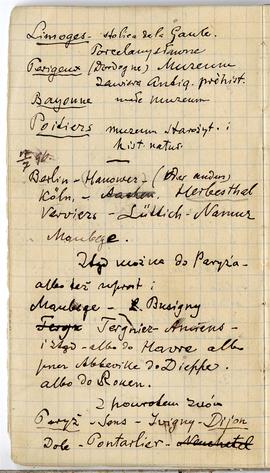 Limoges - stolica dela Gaule.
Porcelany słowne
Perigeux (Dordogne) Muzeum
zawiera Antiq. préhist.
Bayonne małe muzeum
Poitiers muzeum Starożyt. i
hist natur.
Berlin - Hanower (Oder anders)
Köln, - Aachen, Herbesthal
Verviers - Lüttich - Namur
Maubege.
Ztąd można do Paryża
albo też wprost i
Maubege - Busigny
Tergnier - Amiens -
i ztąd - albo do Havre albo
przez Abbeville do Dieppe.
albo do Rouen.
Z powrotem znów
Paryż - Sens - Juvigny - Dijon
Dole - Pontarlier - Neuchatel